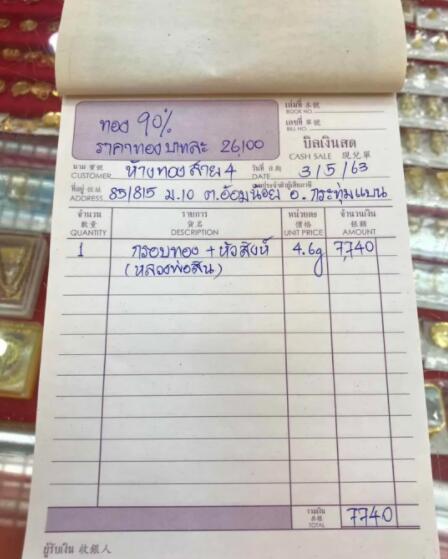 ทอง 90%
ราคาทองบาทละ 26,100
เล่มที่ 本號
BOOK NO.
เลขที่ 單號
BILL NO.
บิลเงินสด
CASH SALE 現兌單
นาม 寶號
CUSTOMER ห้างทองสาย 4
วันที่ 日期
DATE 3/5/63
ที่อยู่ 住址
ADDRESS 85/815 ม.10 ต.อ้อมน้อย อ.กระทุ่มแบน
จำนวน รายการ หน่วยละ จำนวนเงิน
數量 貨名 價格 銀額
QUANTITY DESCRIPTION UNIT PRICE AMOUNT
1 กรอบทอง + หัวสิงห์ 4.6g 7,740
(หลวงพ่อสิน)
รวมเงิน
TOTAL 7740
ผู้รับเงิน 收銀人